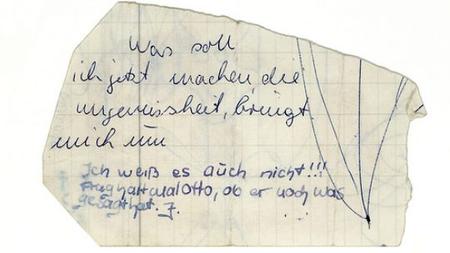 Was soll
ich jetzt machen die
ungewissheit, bringt
mich um
Ich weiß es auch nicht!!!
Frag halt mal Otto, ob er noch was
gesagt hat. J.